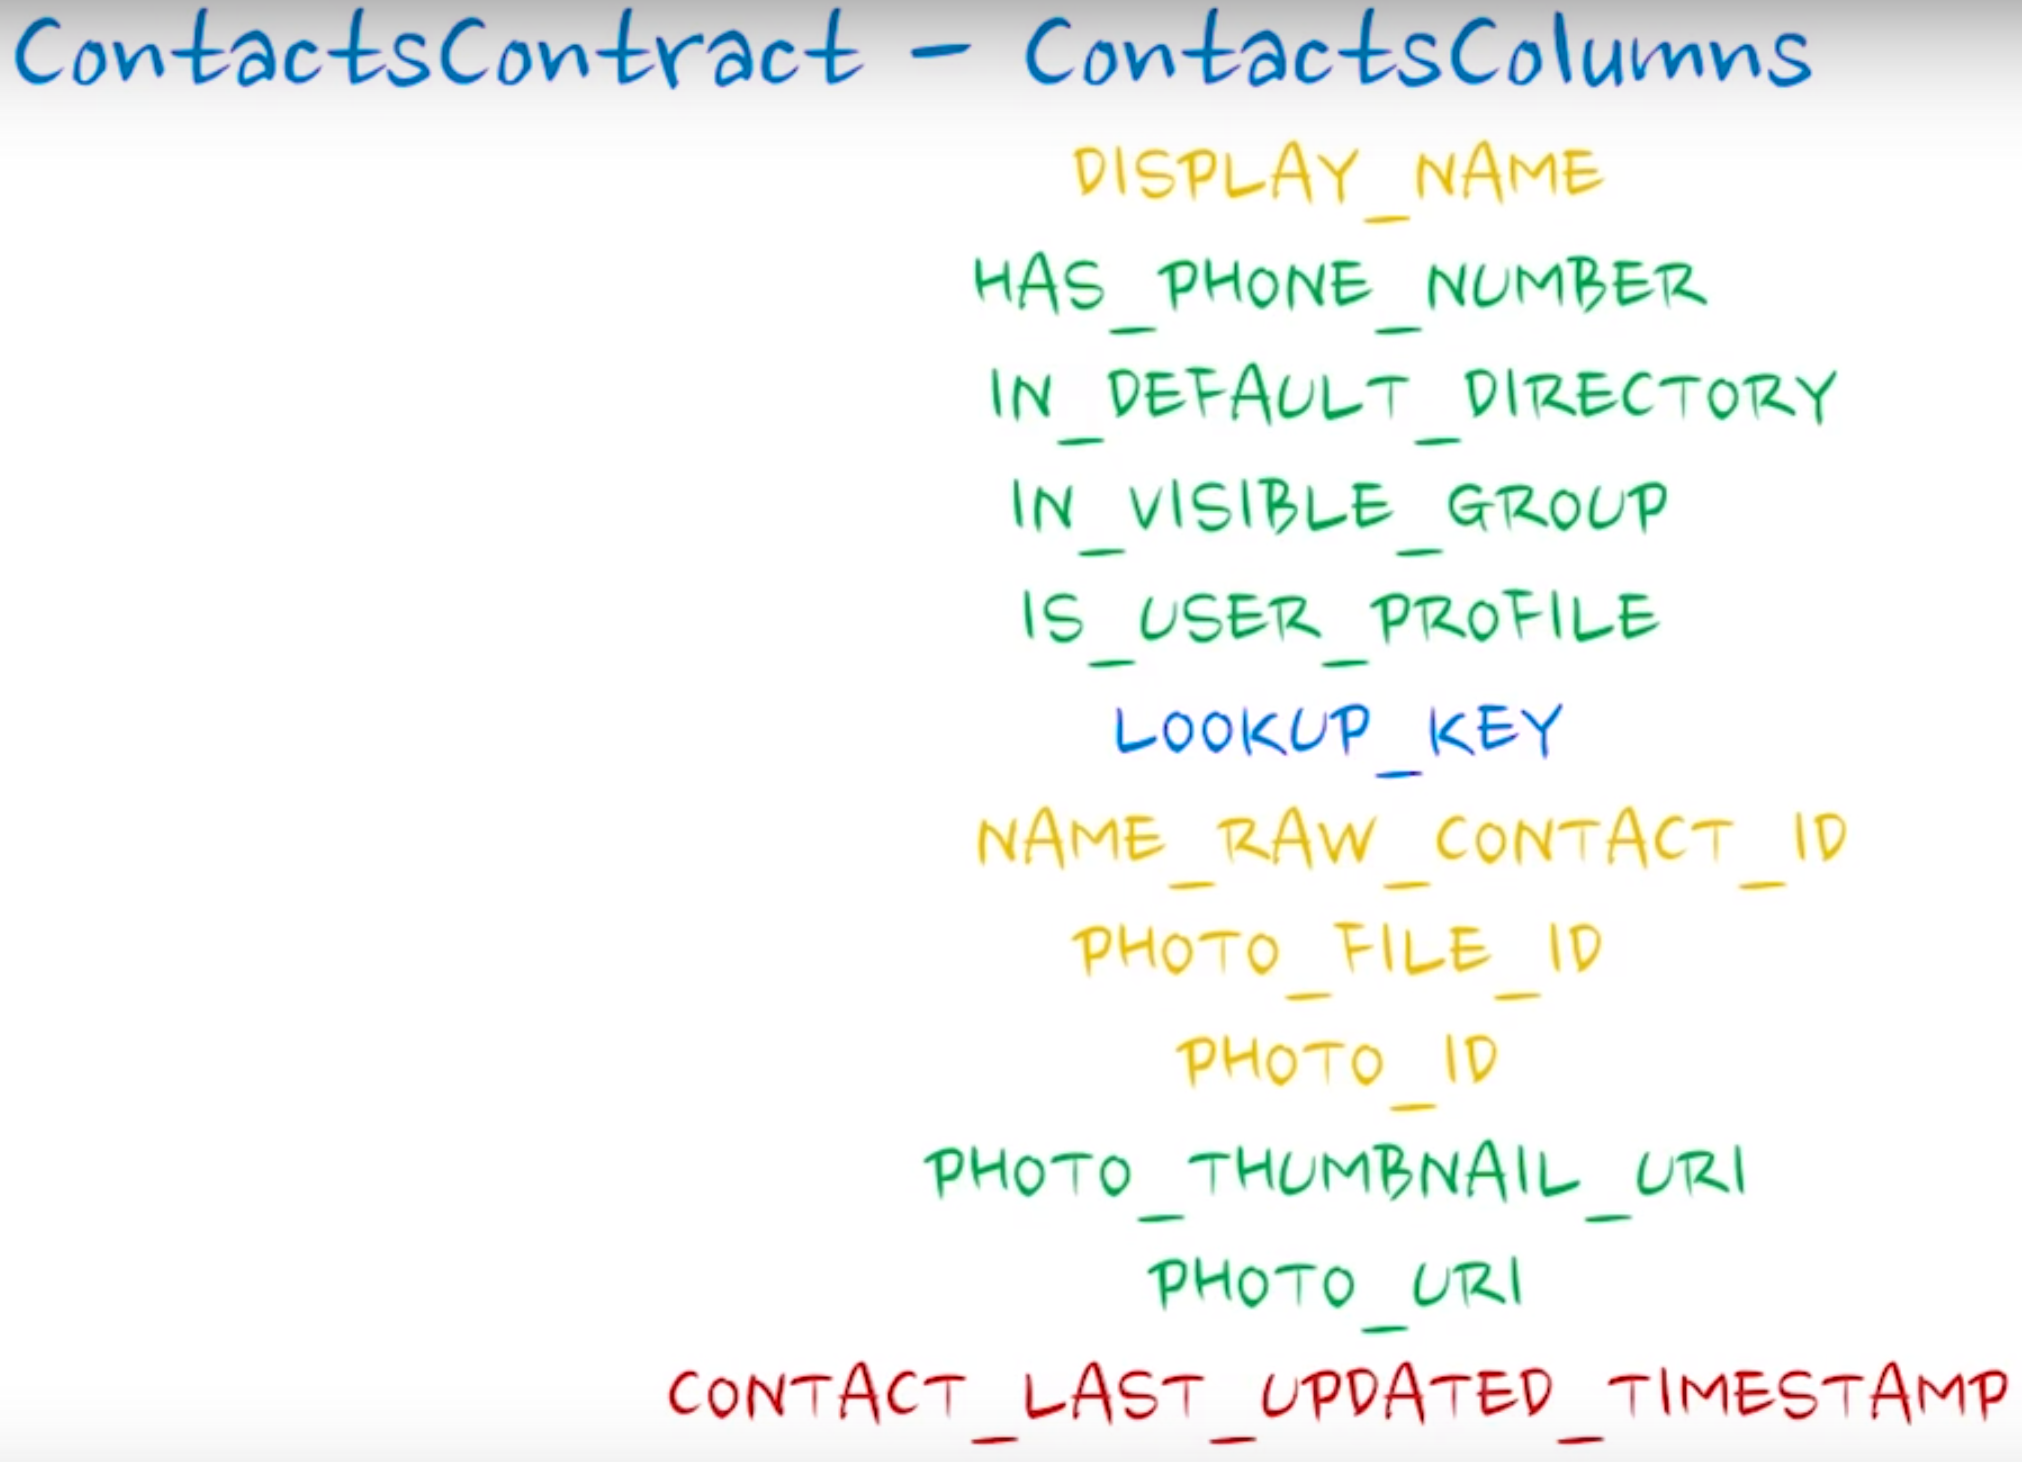 ContactsContract - ContactsColumns
DISPLAY_NAME
HAS_PHONE_NUMBER
IN_DEFAULT_DIRECTORY
IN_VISIBLE_GROUP
IS_USER_PROFILE
LOOKUP_KEY
NAME_RAW_CONTACT_ID
PHOTO_FILE_ID
PHOTO_ID
PHOTO_THUMBNAIL_URI
PHOTO_URI
CONTACT_LAST_UPDATED_TIMESTAMP